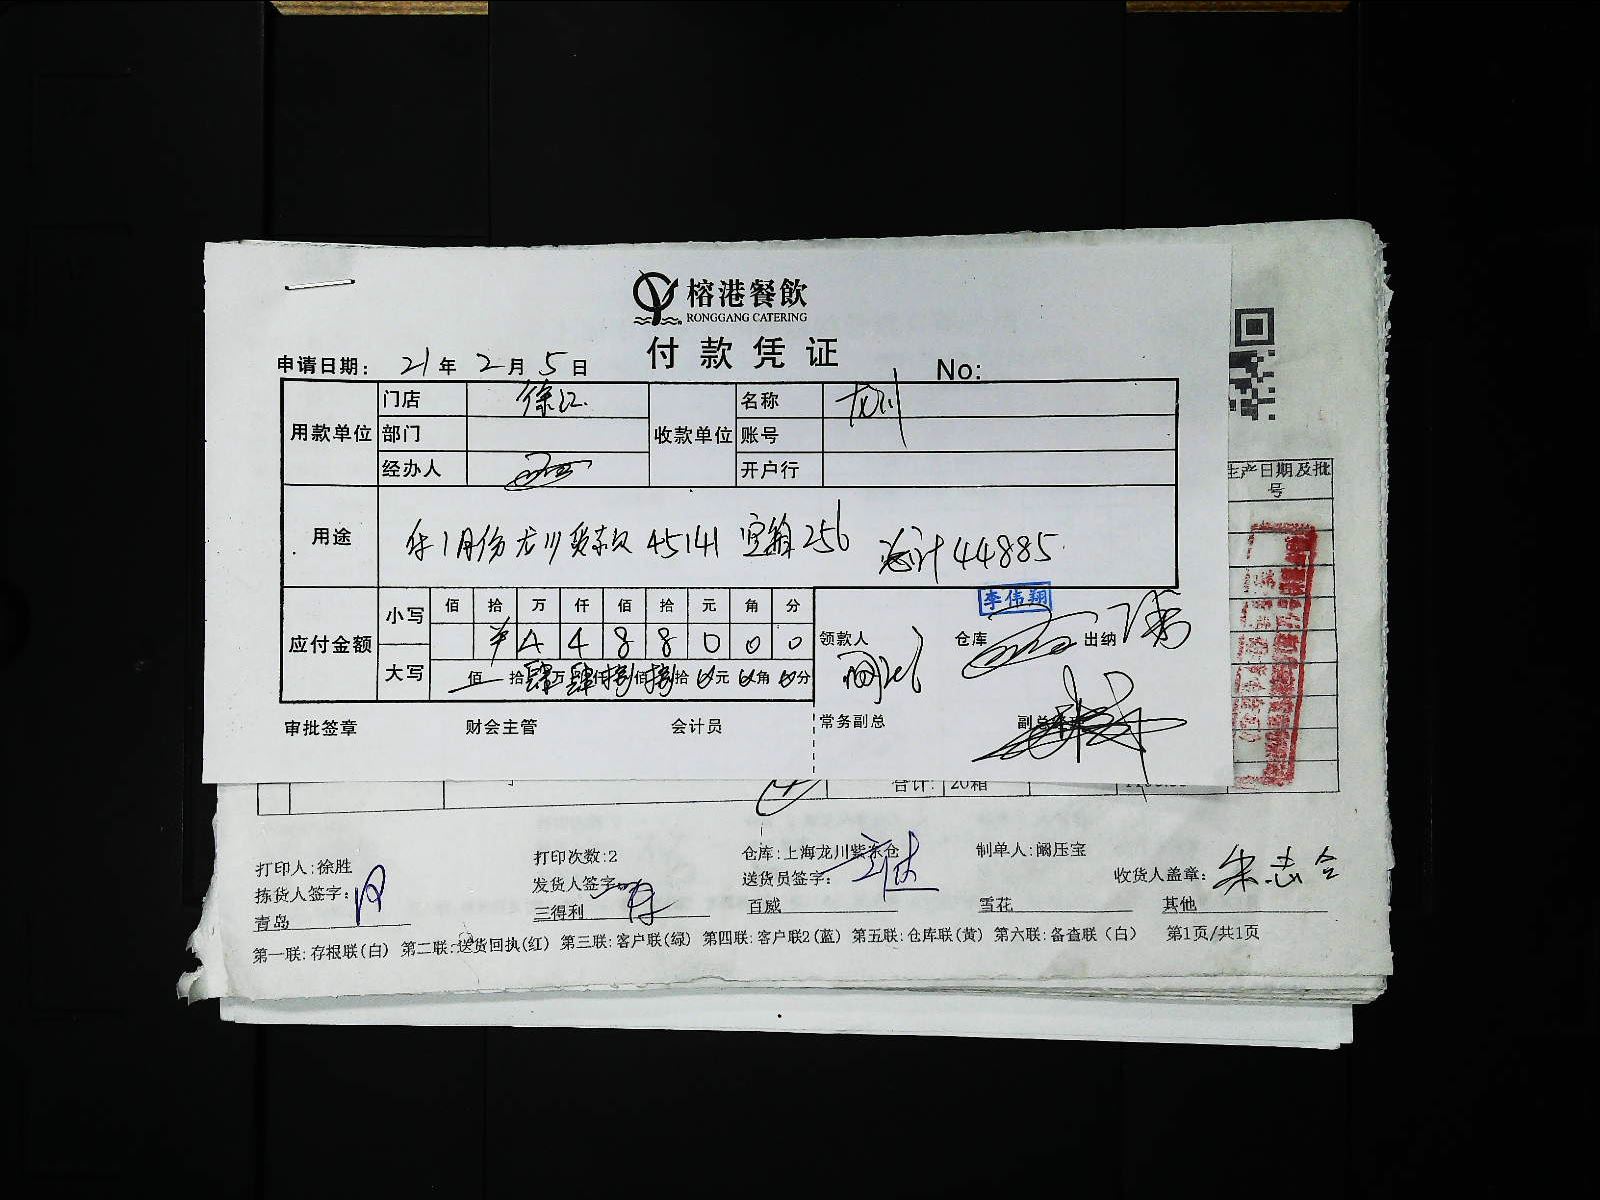 榕港餐飲
RONGGANG CATERING
付款凭证
申请日期: 21年2月5日 No:
用款单位 门店 徐江 收款单位 名称 龙川
部门 账号
经办人 开户行
用途 年1月份龙川货款45141 空箱256 总计44885
应付金额 小写 佰拾万仟佰拾元角分
¥ 4 4 8 8 0 0 0
大写 佰拾肆万肆仟捌佰捌拾0元0角0分
李伟翔
领款人 仓库 出纳
审批签章 财会主管 会计员 常务副总
生产日期及批号
合计: 20箱
打印人:徐胜 打印次数:2 仓库:上海龙川紫东仓 制单人:阚压宝
拣货人签字: 发货人签字: 送货员签字: 收货人盖章: 朱志合
青岛 三得利 百威 雪花 其他
第一联:存根联(白) 第二联:送货回执(红) 第三联:客户联(绿) 第四联:客户联2(蓝) 第五联:仓库联(黄) 第六联:备查联(白) 第1页/共1页